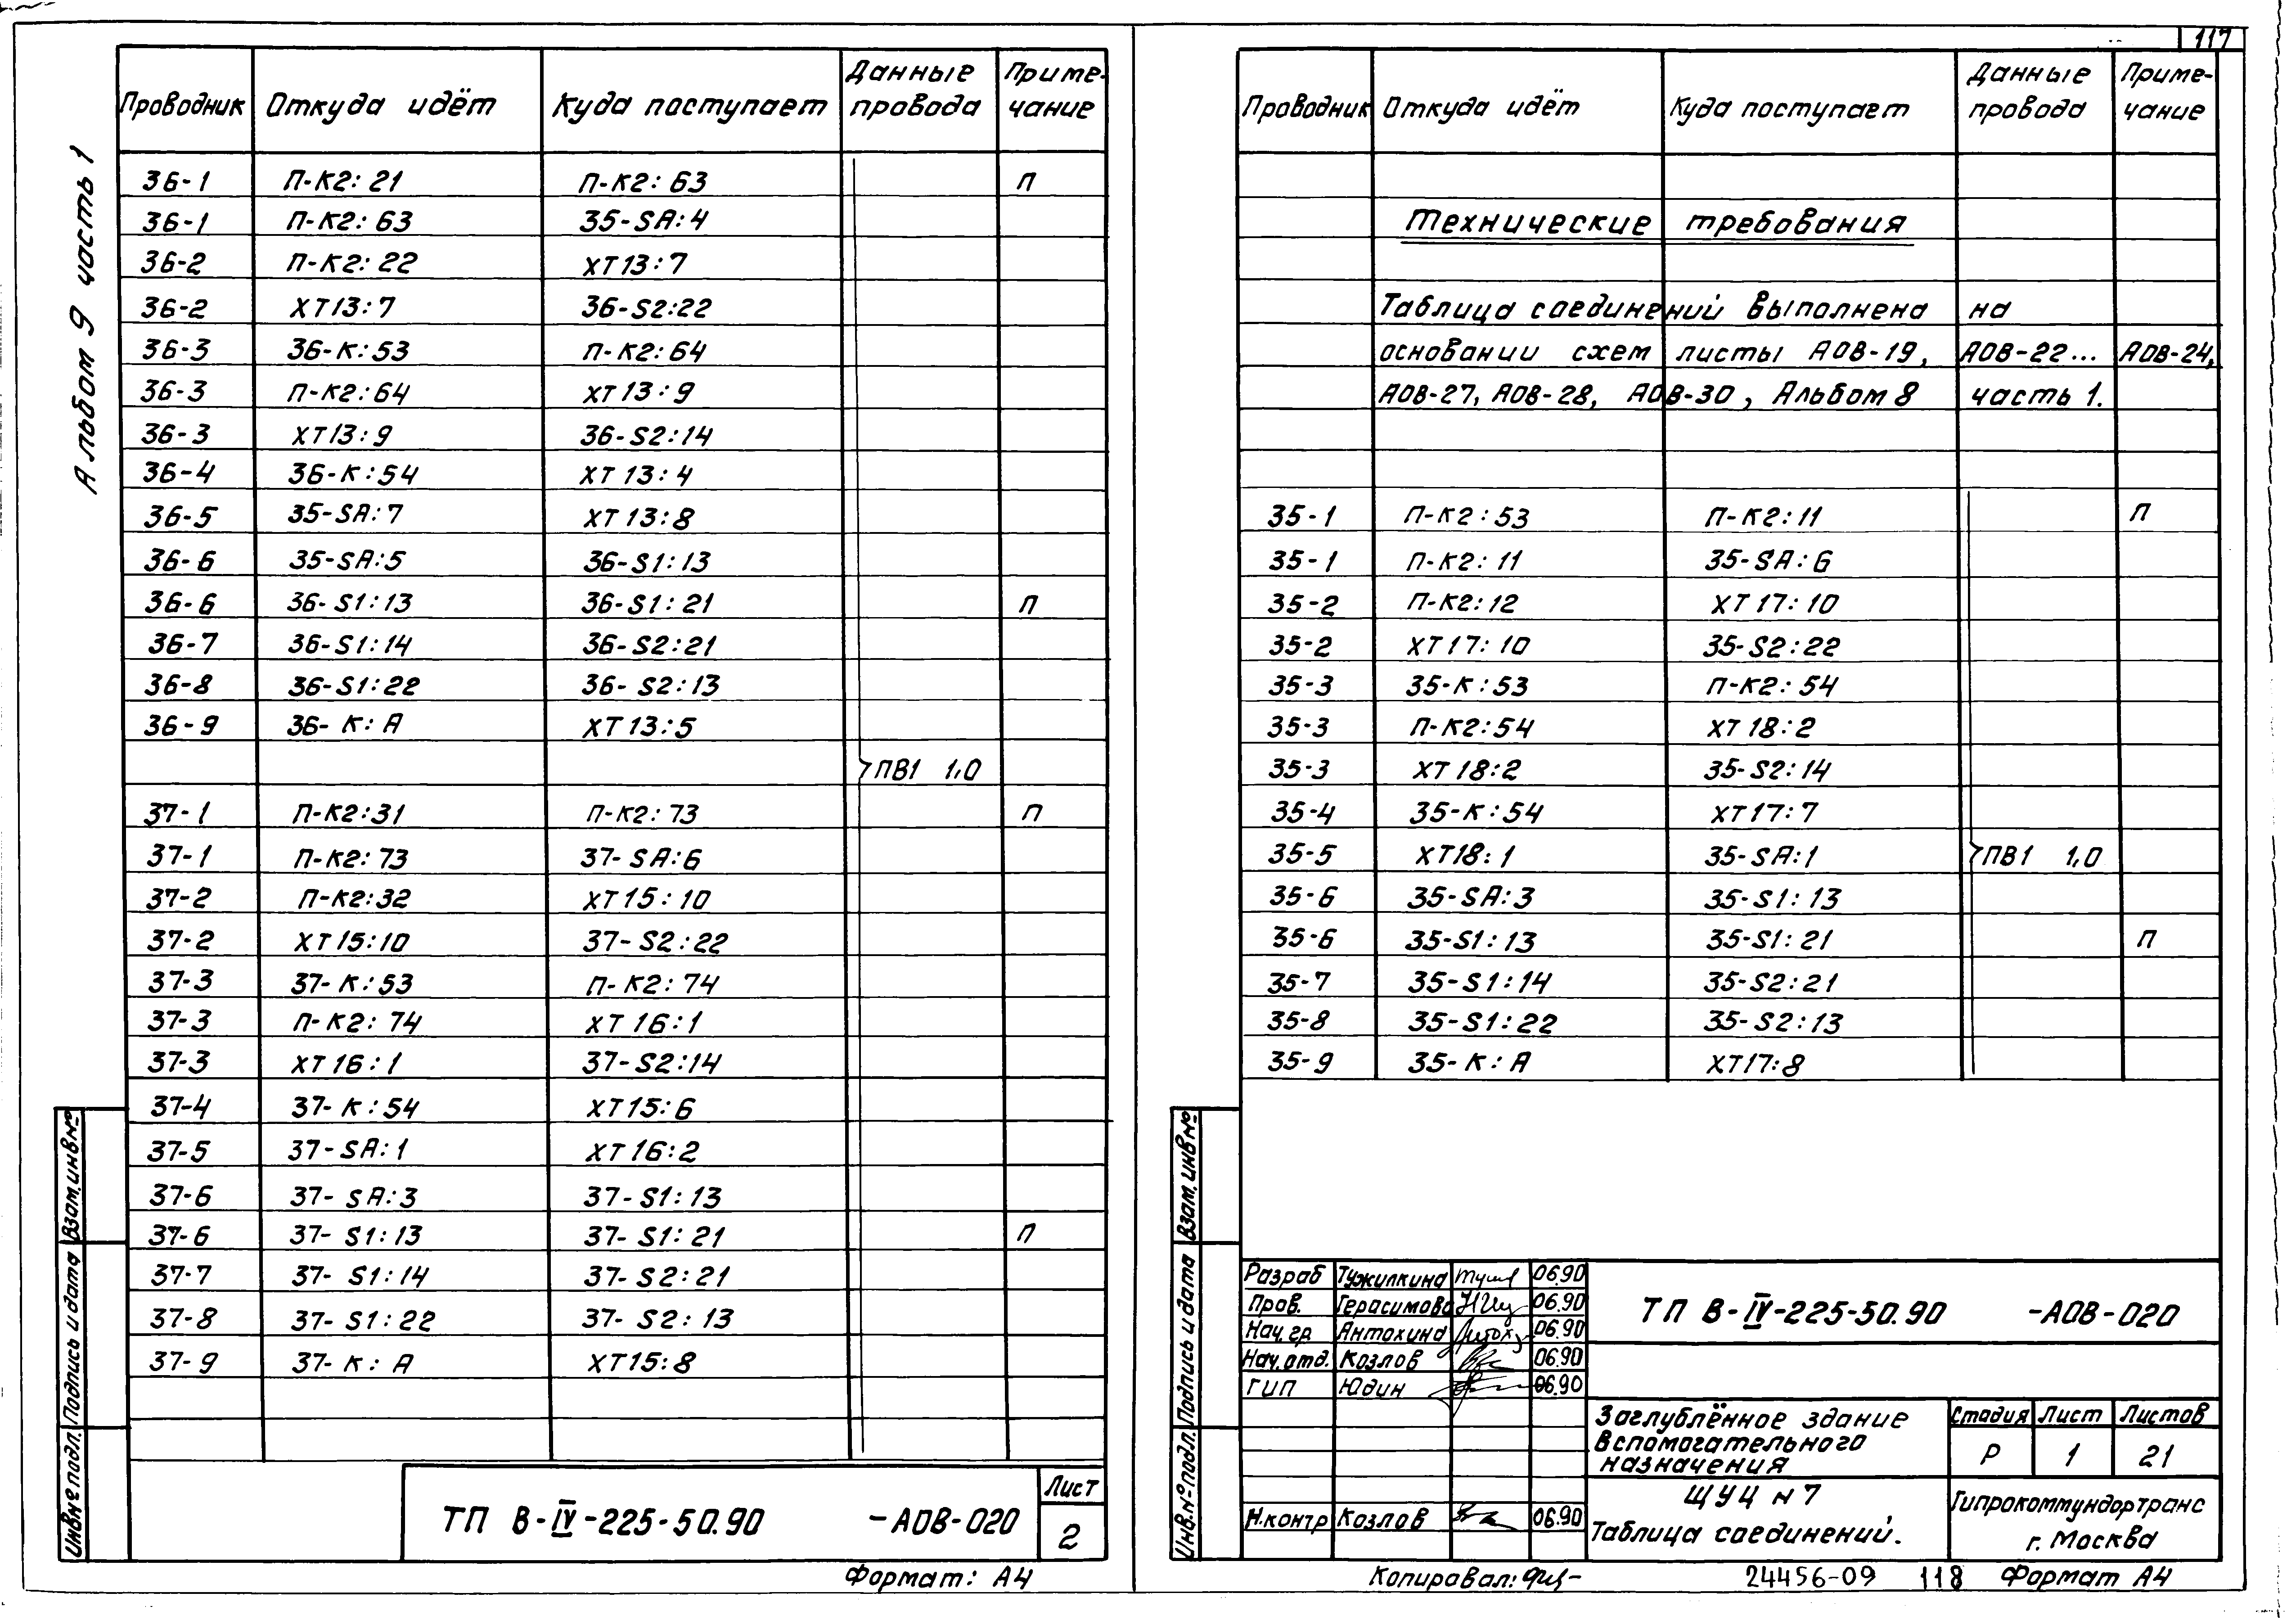 Альбом 9 часть 1
Проводник Откуда идёт Куда поступает Данные провода Приме-чание
36-1 П-К2:21 П-К2:63 П
36-1 П-К2:63 35-SA:4
36-2 П-К2:22 ХТ13:7
36-2 ХТ13:7 36-S2:22
36-3 36-К:53 П-К2:64
36-3 П-К2:64 ХТ13:9
36-3 ХТ13:9 36-S2:14
36-4 36-К:54 ХТ13:4
36-5 35-SA:7 ХТ13:8
36-6 35-SA:5 36-S1:13
36-6 36-S1:13 36-S1:21 П
36-7 36-S1:14 36-S2:21
36-8 36-S1:22 36-S2:13
36-9 36-К:А ХТ13:5
ПВ1 1,0
37-1 П-К2:31 П-К2:73 П
37-1 П-К2:73 37-SA:6
37-2 П-К2:32 ХТ15:10
37-2 ХТ15:10 37-S2:22
37-3 37-К:53 П-К2:74
37-3 П-К2:74 ХТ16:1
37-3 ХТ16:1 37-S2:14
37-4 37-К:54 ХТ15:6
37-5 37-SA:1 ХТ16:2
37-6 37-SA:3 37-S1:13
37-6 37-S1:13 37-S1:21 П
37-7 37-S1:14 37-S2:21
37-8 37-S1:22 37-S2:13
37-9 37-К:А ХТ15:8
Взам.инв№
Подпись и дата
Инв№подл.
ТП В-IV-225-50.90 -АОВ-020
Лист
2
Формат: А4
117
Проводник Откуда идёт Куда поступает Данные провода Приме-чание
Технические требования
Таблица соединений выполнена на
основании схем листы АОВ-19, АОВ-22... АОВ-24,
АОВ-27, АОВ-28, АОВ-30, Альбом 8 часть 1.
35-1 П-К2:53 П-К2:11 П
35-1 П-К2:11 35-SA:6
35-2 П-К2:12 ХТ17:10
35-2 ХТ17:10 35-S2:22
35-3 35-К:53 П-К2:54
35-3 П-К2:54 ХТ18:2
35-3 ХТ18:2 35-S2:14
35-4 35-К:54 ХТ17:7
35-5 ХТ18:1 35-SA:1 ПВ1 1,0
35-6 35-SA:3 35-S1:13
35-6 35-S1:13 35-S1:21 П
35-7 35-S1:14 35-S2:21
35-8 35-S1:22 35-S2:13
35-9 35-К:А ХТ17:8
Взам.инв№
Подпись и дата
Инв.№подл.
Разраб Тужилкина 06.90
Пров. Герасимова 06.90
Нач.гр Антохина 06.90
Нач.отд. Козлов 06.90
ГИП Юдин 06.90
Н.контр Козлов 06.90
ТП В-IV-225-50.90 -АОВ-020
Заглублённое здание
вспомогательного
назначения
Стадия Лист Листов
Р 1 21
ЩУЦ н7
Таблица соединений.
Гипрокоммундортранс
г. Москва
Копировал:
24456-09 118 Формат А4